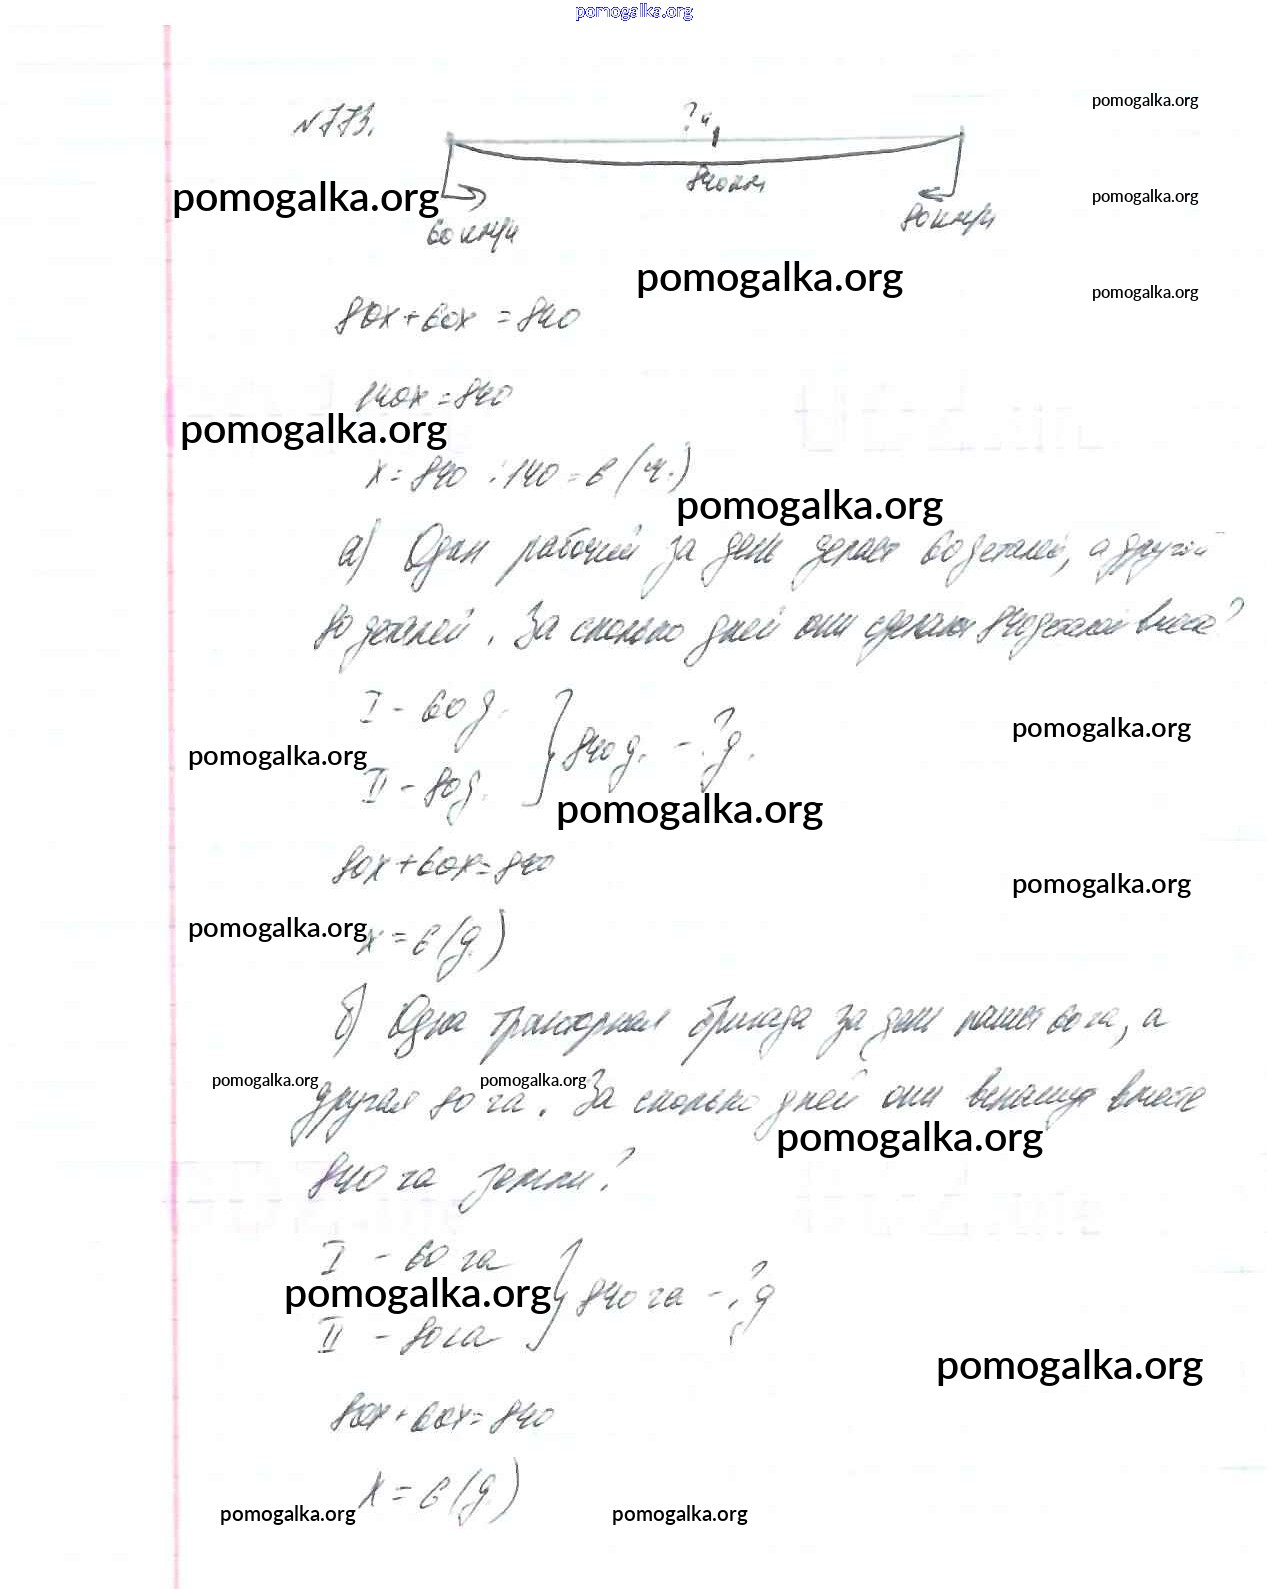 pomogalka.org
№773.
?ч
pomogalka.org
840км
pomogalka.org
pomogalka.org
60км/ч
80км/ч
pomogalka.org
pomogalka.org
80х+60х=840
140х=840
pomogalka.org
х=840:140=6(ч.)
pomogalka.org
а) Один рабочий за день делает 60 деталей, а другой
80 деталей. За сколько дней они сделают 840 деталей вместе?
I - 60 д.
} 840 д. - ? д.
pomogalka.org
pomogalka.org
II - 80 д.
pomogalka.org
80х+60х=840
pomogalka.org
pomogalka.org
х=6(д.)
б) Одна тракторная бригада за день пашет 60 га, а
pomogalka.org
pomogalka.org
другая 80 га. За сколько дней они вспашут вместе
pomogalka.org
840 га земли?
I - 60 га
pomogalka.org
} 840 га - ? д
II - 80 га
pomogalka.org
80х+60х=840
х=6(д.)
pomogalka.org
pomogalka.org